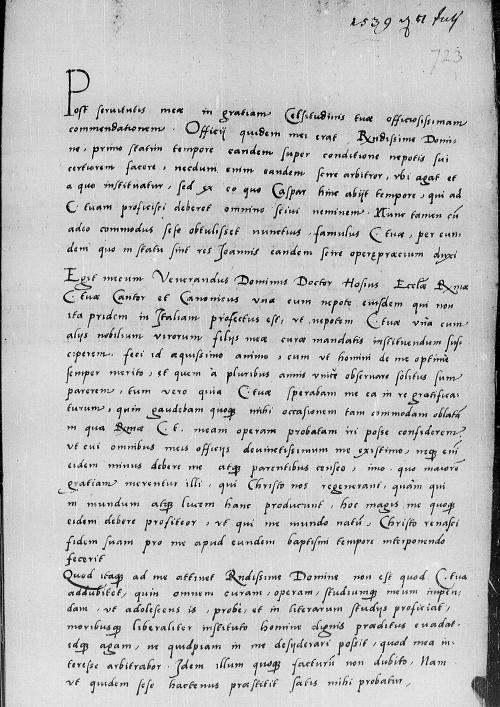 1539 7 Julij
723
Post servitutis meæ in gratiam Celsitudinis tuæ officiosissimam
commendationem. Officij quidem mei erat Rndissime Domi-
ne, primo statim tempore eandem super conditione nepotis sui
certiorem facere, necdum enim eandem scire arbitror, vbi agat et
a quo instituatur, sed ex eo quo Caspar hinc abijt tempore, qui ad
C. tuam proficisci deberet omnino scivi neminem. Nunc tamen cũ
adeo commodus sese obtulisset nuncius famulus C. tuæ, per eun
dem quo in statu sint res Joannis eandem scire operæprecium duxi
Egit mecum Venerandus Dominus Doctor Hosius Ecclæ Rmæ
C. tuæ Cantor et Canonicus vna cum nepote eiusdem qui non
ita pridem in Italiam profectus est, vt nepotem C. tuæ vna cum
alijs nobilium virorum filijs meæ curæ mandatis instituendum susc
ciperem. feci id æquissimo animo, cum vt homini de me optime
semper merito, et quem a pluribus annis vnice observare solitus sum
parerem, tum vero quia C. tuæ sperabam me ea in re gratifica-
turum, quin gaudebam quoq mihi occasionem tam commodam oblatã
in qua Rmæ C. t. meam operam probatam iri posse confiderem
vt cui omnibus meis officijs devinctissimum me existimo, neq enĩ
eidem minus debere me atq parentibus censeo, imo quo maiorẽ
gratiam merentur illi, qui Christo nos regenerant, quàm qui
in mundum atq lucem hanc producunt, hoc magis me quoq
eidem debere profiteor, vt qui me mundo natũ, Christo renasci
fidem suam pro me apud eundem baptismi tempore interponendo
fecerit
Quod itaq ad me attinet Rndissime Domine non est quod C. tua
addubitet, quin omnem curam, operam, studiumq meum impen-
dam, vt adolescens is, probe, et in literarum studijs proficiat,
moribusq liberaliter instituto homine dignis præditus evadat.
idq agam, ne quidpiam in me desyderari possit, quod mea in-
teresse arbitrabor. Idem illum quoq facturũ non dubito, Nam
vt quidem sese hactenus præstitit satis mihi probatur,